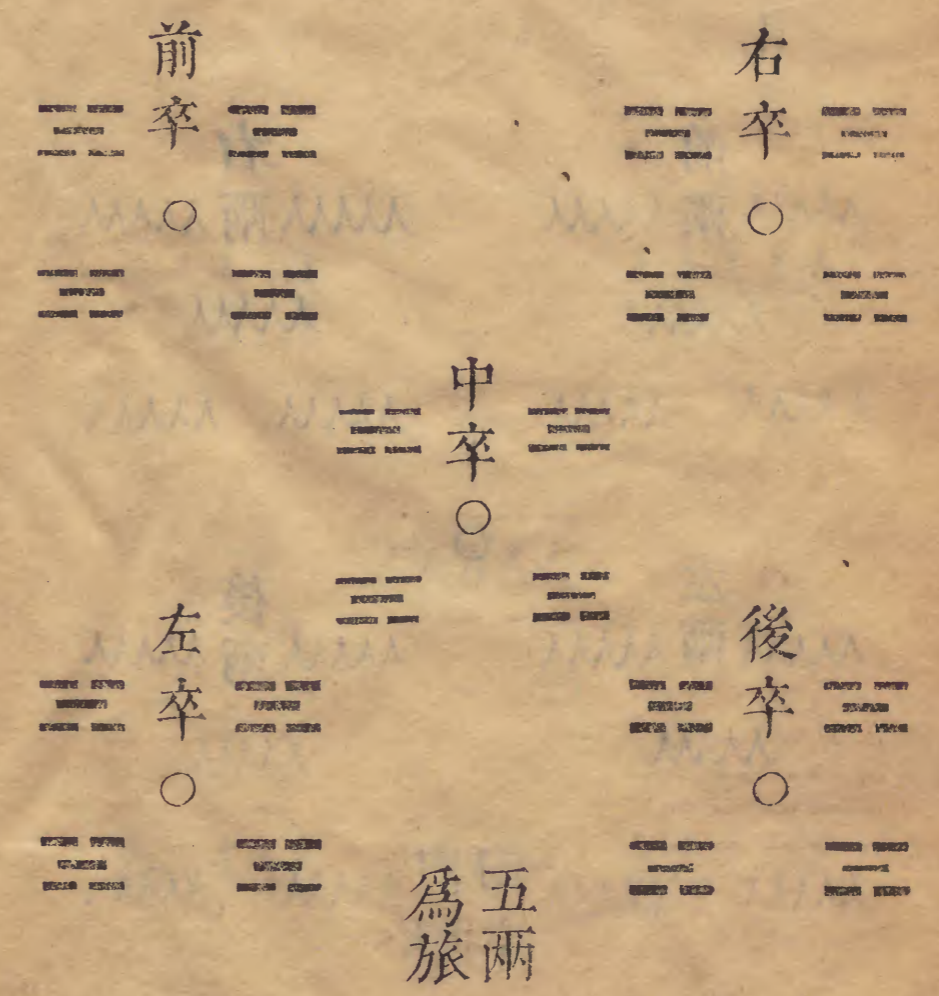 右卒
前卒
中卒
後卒
左卒
五兩
爲旅